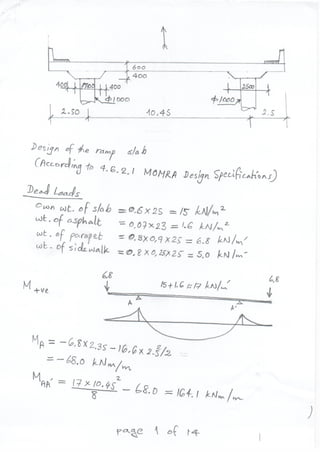 600
400
400 1700 400
2500
Φ1000
Φ1000
2.50 10.45 2.5
Design of the ramp slab
(According to 4.6.2.1 MOMRA Design Specifications)
Dead Loads
own wt. of slab = 0.6 x 25 = 15 kN/m²
wt. of asphalt = 0.07 x 23 = 1.6 kN/m²
wt. of parapet = 0.3 x 0.9 x 25 = 6.8 kN/m'
wt. of sidewalk = 0.8 x 0.25 x 25 = 5.0 kN/m'
M+ve
6.8 15+1.6 = 17 kN/m' 6.8
A A'
MA = -6.8 x 2.35 - 16.6 x 2.5²/2
= -68.0 kNm/m
MAA' = 17 x 10.45²/8 - 68.0 = 164.1 kNm/m
page 1 of 14